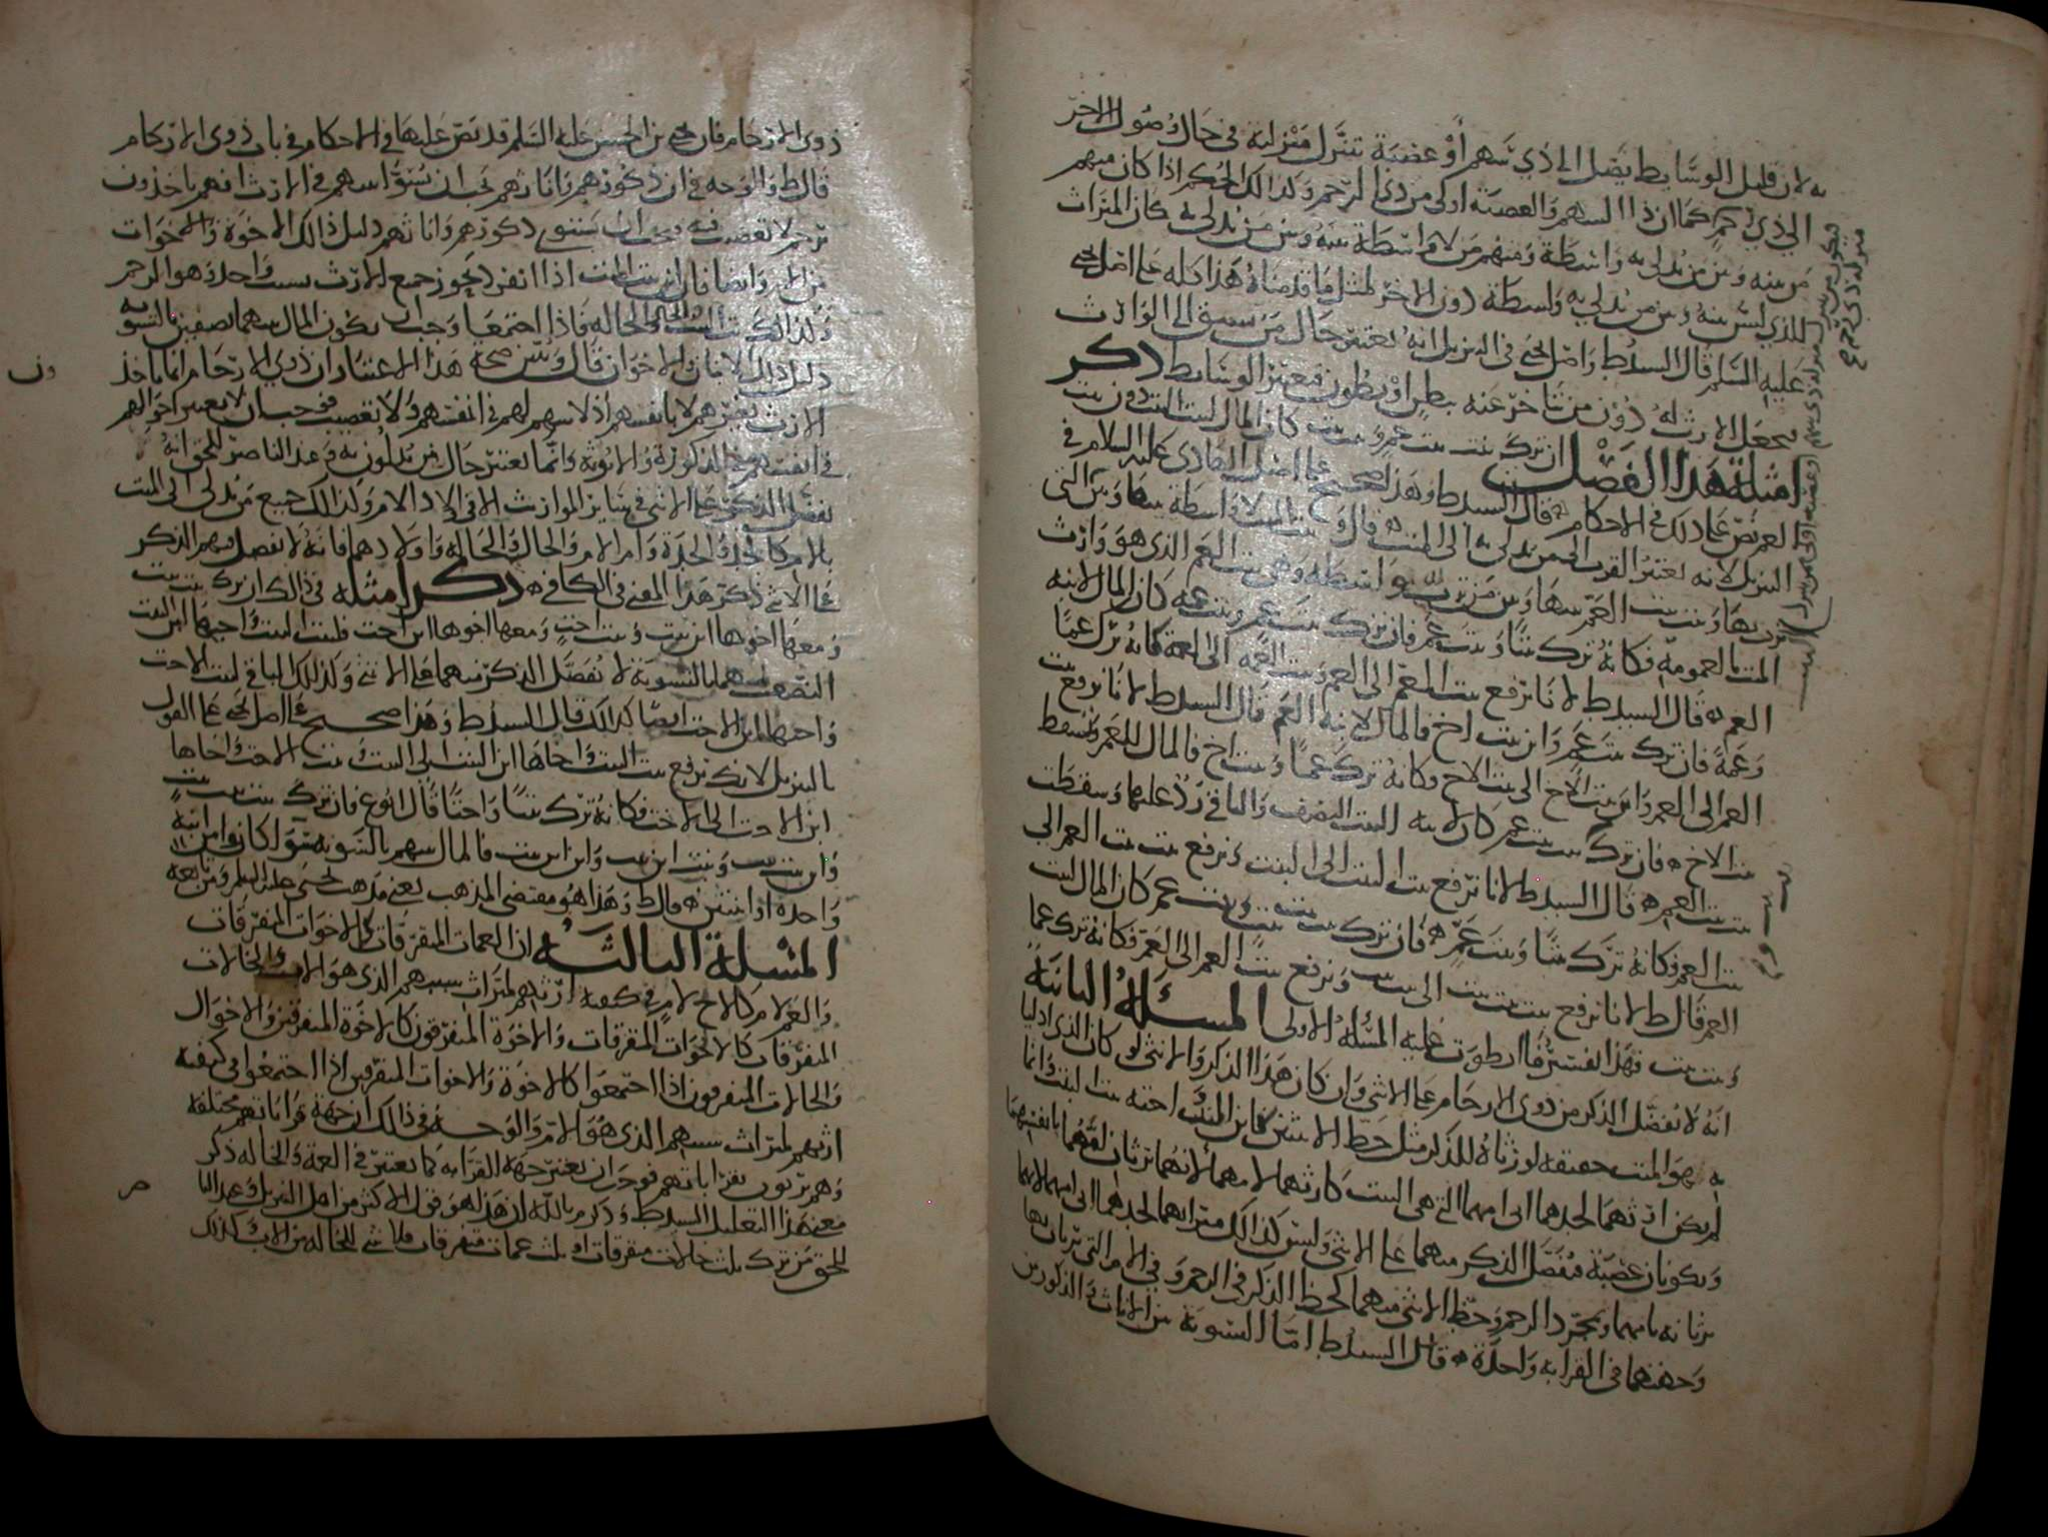 به لان قليل الوسايط يصل الى ذي سهم أو عصبة تتنزل منزلته في حال وصول الاخر
الى ذي رحم كما ان ذا السهم والعصبة اولى من ذي الرحم وكذلك الحكم اذا كان منهم
من بينه وبين من يدلي به واسطة ومنهم من لا واسطة بينه وبين من يدلي به كان الميراث
للذي ليس بينه وبين من يدلي به واسطة دون الاخر لمثل ما قدمناه هذا كله على اصل يحيى
عليه السلم قال السيد ط واصل يحيى في التنزيل انه يعتبر حال من سبق الى الوارث
فيجعل الارث له دون من تأخر عنه ببطن او بطون فيعتبر الوسايط ذكر
امثلة هذا الفصل ان ترك بنت بنت عم وبنت بنت كان المال لبنت البنت دون بنت
العم نص على ذلك في الاحكام قال السيد ط وهذا صحيح على اصل الهادي عليه السلام في
التنزيل لانه يعتبر القرب الى من يدلي به الى الميت قال وبنت البنت لا واسطة بينها وبين التي
ترث بها وبنت بنت العم بينها وبين من ترث به واسطة وهي بنت العم الذي هو وارث
الميت بالعمومة فكانه ترك بنتا وبنت عم فان ترك بنت عم وبنت عمة كان المال لابنة
العم قال السيد ط لانا نرفع بنت العم الى العم وبنت العمة الى العمة فكانه ترك عما
وعمة فان ترك بنت عم وابن بنت اخ فالمال لابنة العم قال السيد ط لانا نرفع بنت
العم الى العم وابن بنت الاخ الى بنت الاخ فكانه ترك عما وبنت اخ فالمال للعم وتسقط
بنت الاخ فان ترك بنت بنت عم كان لابنة البنت النصف والباقي رد عليها وسقطت
بنت بنت العم قال السيد ط لانا نرفع بنت البنت الى البنت ونرفع بنت بنت العم الى
بنت العم فكانه ترك بنتا وبنت عم فان ترك بنت بنت بنت وبنت عم كان المال لبنت
العم قال ط لانا نرفع بنت بنت بنت الى بنت بنت ونرفع بنت العم الى العم فكانه ترك عما
وبنت بنت فهذا تفسير ما انطوت عليه المسئلة الاولى المسئلة الثانية
انه لا يفضل الذكر من ذوي الارحام على الانثى وان كان هذا الذكر والانثى لو كان الذي ادليا
به هو الميت حقيقة لورثاه للذكر مثل حظ الانثيين كابن البنت اخته بنت البنت وانما
لم يكن ارثهما لجدهما ابي امهما التي هي البنت كارثهما لامهما لانهما يرثان امهما بانفسهما
ويكونان عصبة فيفضل الذكر منهما على الانثى وليس كذلك ميراثهما لجدهما ابي امهما لانهما
يرثانه بامهما وبمجرد الرحم وحظ الانثى منهما كحظ الذكر في الرحم وفي الام التي يرثان بها
وجهتهما في القرابة واحدة قال السيد ط اما التسوية بين الاناث والذكور من
ذوي الارحام فان يحيى بن الحسين عليه السلم قد نص عليها في الاحكام في باب ذوي الارحام
قال ط والوجه في ان ذكورهم واناثهم يجب ان يستوي اسهم في الارث انهم ياخذون
برحم لا تعصيب فيه فيجب ان يستوي ذكورهم واناثهم دليل ذلك الاخوة والاخوات
من الام وايضا فان ابن بنت الميت اذا انفرد يحوز جميع الارث بسبب واحد وهو الرحم
وكذلك بنت البنت والخال والخالة فاذا اجتمعا وجب ان يكون المال بينهما نصفين بالسوية
دليل ذلك الابنان والاخوان قال ويبين صحة هذا الاعتبار ان ذوي الارحام انما ياخذ
الارث بغيرهم لا بانفسهم اذ لا سهم لهم في انفسهم ولا تعصيب فوجب ان لا يعتبر احوالهم
في انفسهم من الذكورة والانوثة وانما يعتبر حال من يدلون به وعند الناصر للحق انه
يفضل الذكر على الانثى في سائر المواريث الا في اولاد الام وكذلك جميع من يدلي الى الميت
بالام كالجد والجدة وام الام والخال والخالة واولادهما فانه لا يفضل فيهم الذكر
على الانثى ذكر هذا المعنى في الكافي ذكر امثلة في ذلك ان ترك بنت بنت
ومعها اخوها ابن بنت وبنت اخت ومعها اخوها ابن اخت فلبنت البنت واخيها ابن البنت
النصف بينهما بالتسوية لا يفضل الذكر منهما على الانثى وكذلك الباقي لبنت الاخت
واخيها ابن الاخت ايضا كذلك قال السيد ط وهذا صحيح على اصل يحيى على القول
بالتنزيل لانك ترفع بنت البنت واخاها ابن البنت الى البنت وبنت الاخت واخاها
ابن الاخت الى الاخت فكانه ترك بنتا واختا قال ابو ع فان ترك بنت بنت بنت
وابن بنت بنت وبنت ابن بنت وابن ابن بنت فالمال بينهم بالسوية سواء كانوا من ابنة
واحدة او اثنتين قال ط وهذا هو مقتضى المذهب يعني مذهب يحيى عليه السلم ومن تابعه
المسئلة الثالثة ان العمات المتفرقات كالاخوات المتفرقات
والعم لام كالاخ لام في كيفية ارثهم لميراث سببهم الذي هو الاب والخالات
المتفرقات كالاخوات المتفرقات والاخوة المتفرقون كالاخوة المتفرقين والاخوال
والخالات المتفرقون اذا اجتمعوا كالاخوة والاخوات المتفرقين اذا اجتمعوا في كيفية
ارثهم لميراث سببهم الذي هو الام والوجه في ذلك ان جهة قراباتهم مختلفة
وهم يرثون بقراباتهم فوجب ان يعتبر جهة القرابة كما يعتبر في العمة والخالة ذكر
معنى هذا التعليل السيد ط وذكر م بالله ان هذا هو قول الاكثر من اهل التنزيل وعند النا
للحق من ترك ثلث خالات متفرقات او ثلث عمات متفرقات فلا شي للخالة من الاب وكذلك